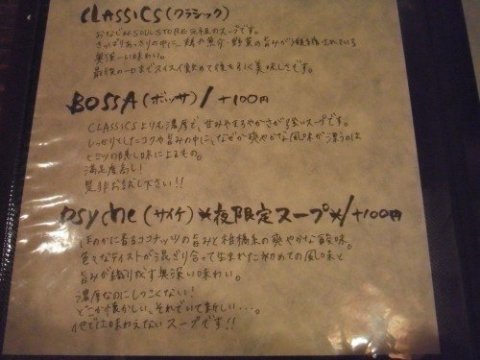 CLASSICS(クラシック)
おなじみSOUL STORE元祖のスープです。
さっぱりあっさりの中に、鶏の養分、野菜の旨みが凝縮されている
奥深ーい味わい。
最後の一口までスイスイ飲めて後も引く美味しさです。
BOSSA(ボッサ)/+100円
CLASSICSよりも濃厚で、甘みやまろやかさが強いスープです。
しっかりとしたコクや旨みの中に、なぜか爽やかな風味が漂うのは
ヒミツの隠し味によるもの。
満足度高し!
是非お試し下さい!!
psyche(サイケ)*夜限定スープ*/+100円
ほのかに香るココナッツの旨みと柑橘系の爽やかな酸味。
色々なテイストが混ざり合って生まれた初めての風味と
旨みが織り成す奥深い味わい。
濃厚なのにしつこくない!
どこか懐かしい、それでいて新しい…。
他では味わえないスープです!!